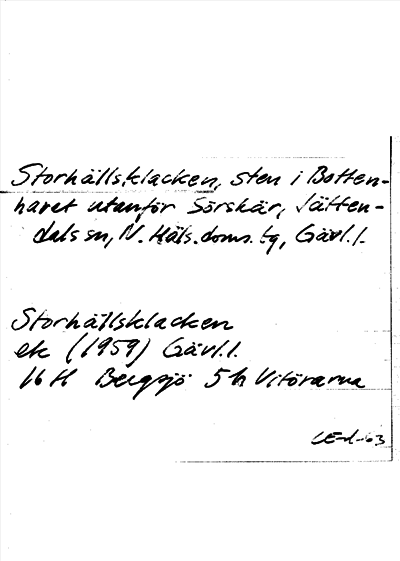 Storhällsklacken, sten i Botten-
havet utanför Sörskär, Jätten-
dals sn, N. Häls. doms. tg, Gävl. l.
Storhällsklacken
ek (1959) Gävl. l.
16 H Bergsjö 5 h Vitörarna